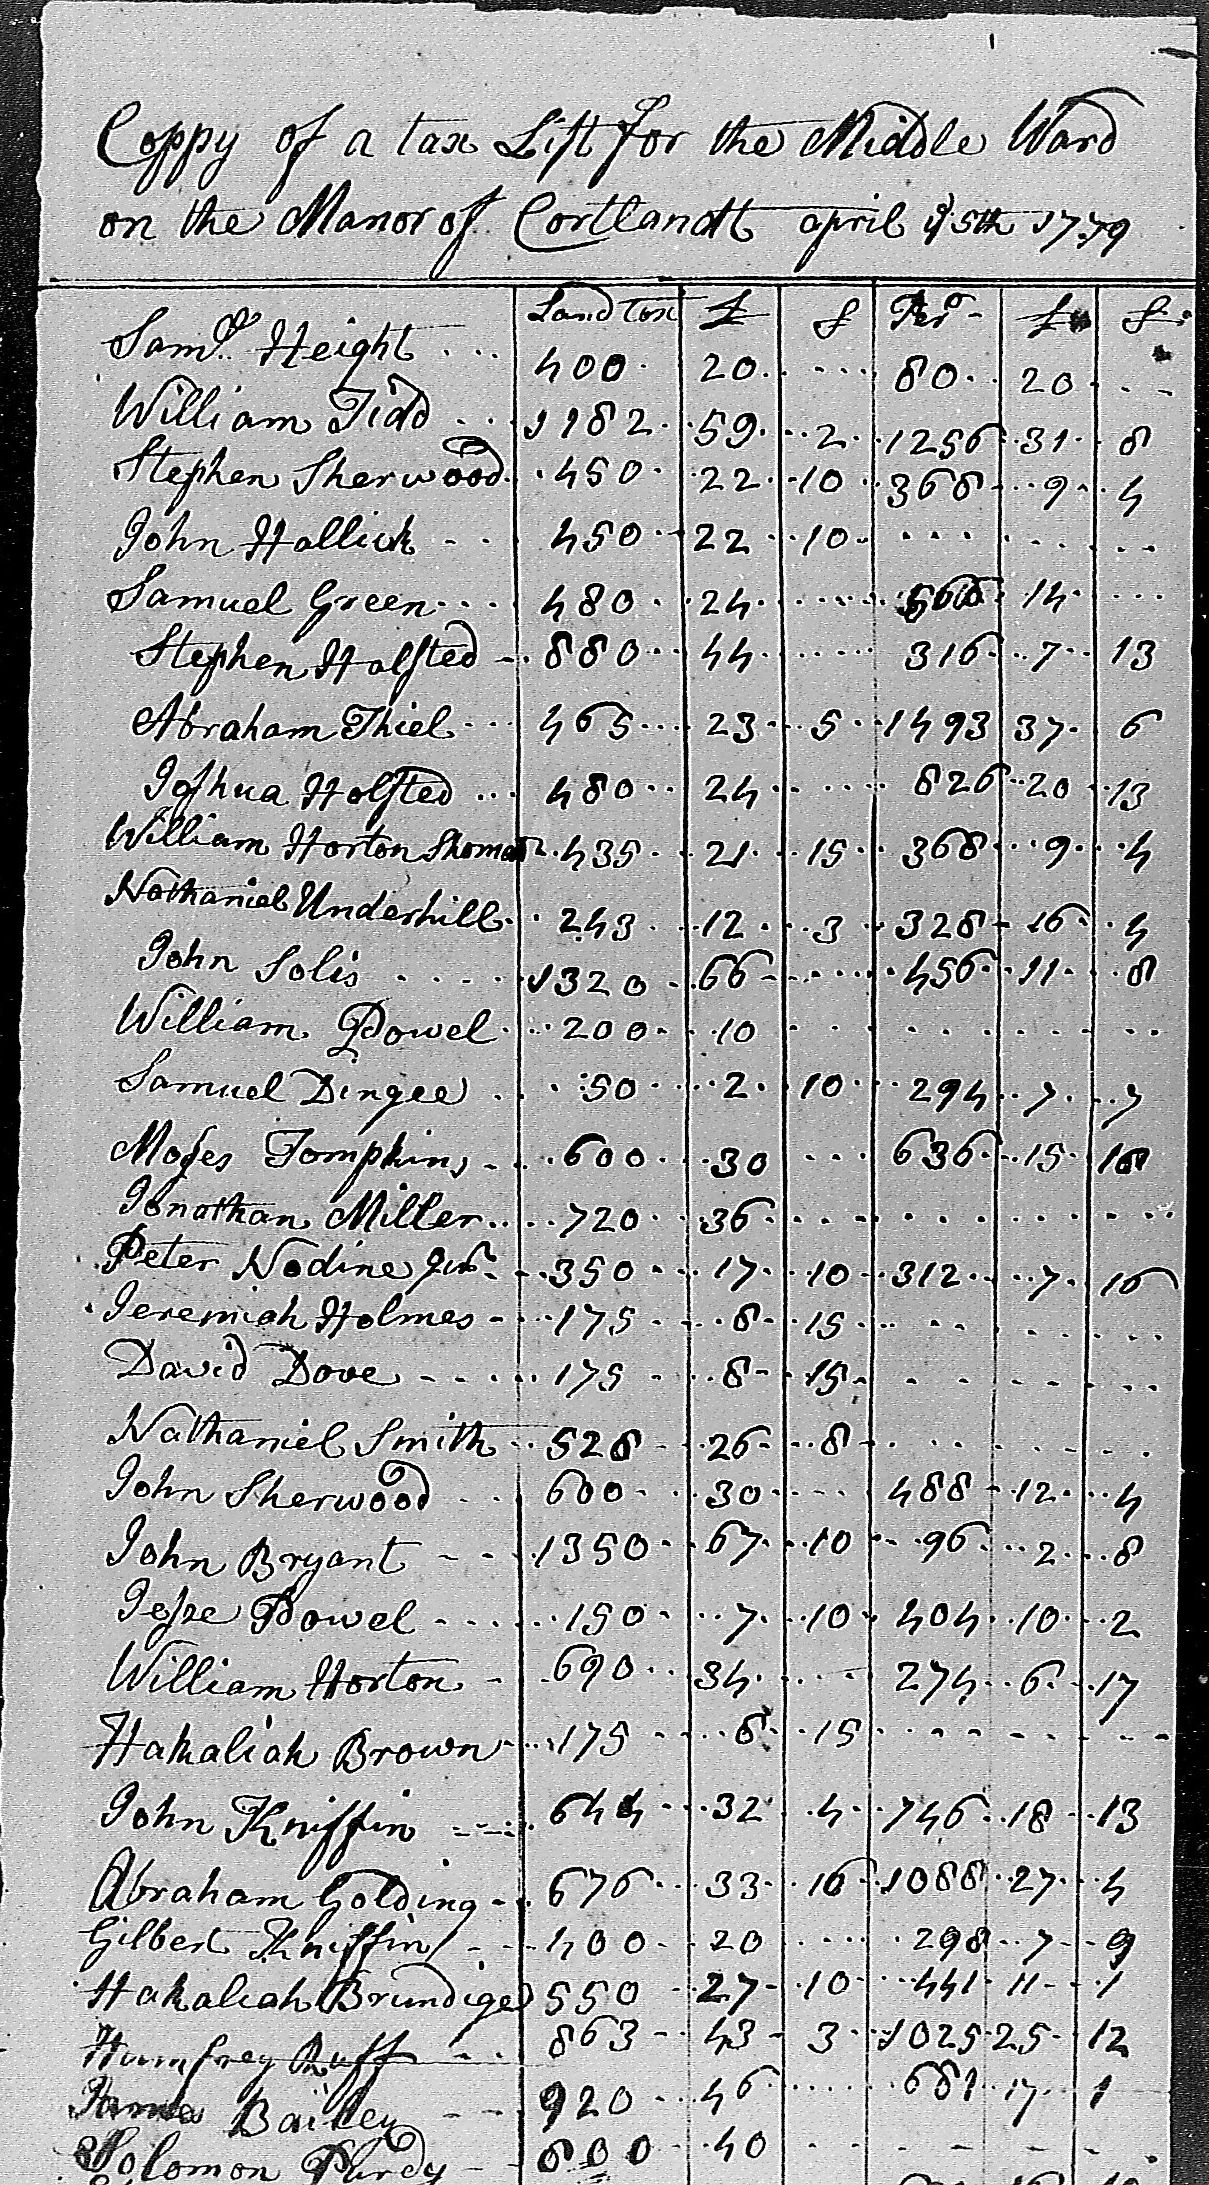 Coppy of a tax List for the Middle Ward
on the Manor of Cortlandt april ye 5th 1779
Land tax £ S Per £ S
Saml. Height 400 20 80 20
William Tidd 1182 59 2 1256 31 8
Stephen Sherwood 450 22 10 368 9 4
John Hallick 450 22 10
Samuel Green 480 24 560 14
Stephen Halsted 880 44 316 7 13
Abraham Thiel 465 23 5 1493 37 6
Joshua Halsted 480 24 826 20 13
William Horton 435 21 15 368 9 4
Nathaniel Underhill 243 12 3 328 16 4
John Solis 1320 66 456 11 8
William Powel 200 10
Samuel Dingee 50 2 10 294 7 7
Moses Tompkins 600 30 636 15 18
Jonathan Miller 720 36
Peter Nodine Jur 350 17 10 312 7 16
Jeremiah Holmes 175 8 15
David Dove 175 8 15
Nathaniel Smith 528 26 8
John Sherwood 600 30 488 12 4
John Bryant 1350 67 10 96 2 8
Jesse Powel 150 7 10 404 10 2
William Horton 690 34 274 6 17
Hakaliah Brown 175 8 15
John Kniffin 644 32 4 746 18 13
Abraham Golding 676 33 16 1088 27 4
Gilbert Kniffin 400 20 298 7 9
Hakaliah Brundige 550 27 10 441 11 1
Humfrey Ruff 863 43 3 1025 25 12
James Bailey 920 46 681 17 1
Solomon Purdy 800 40